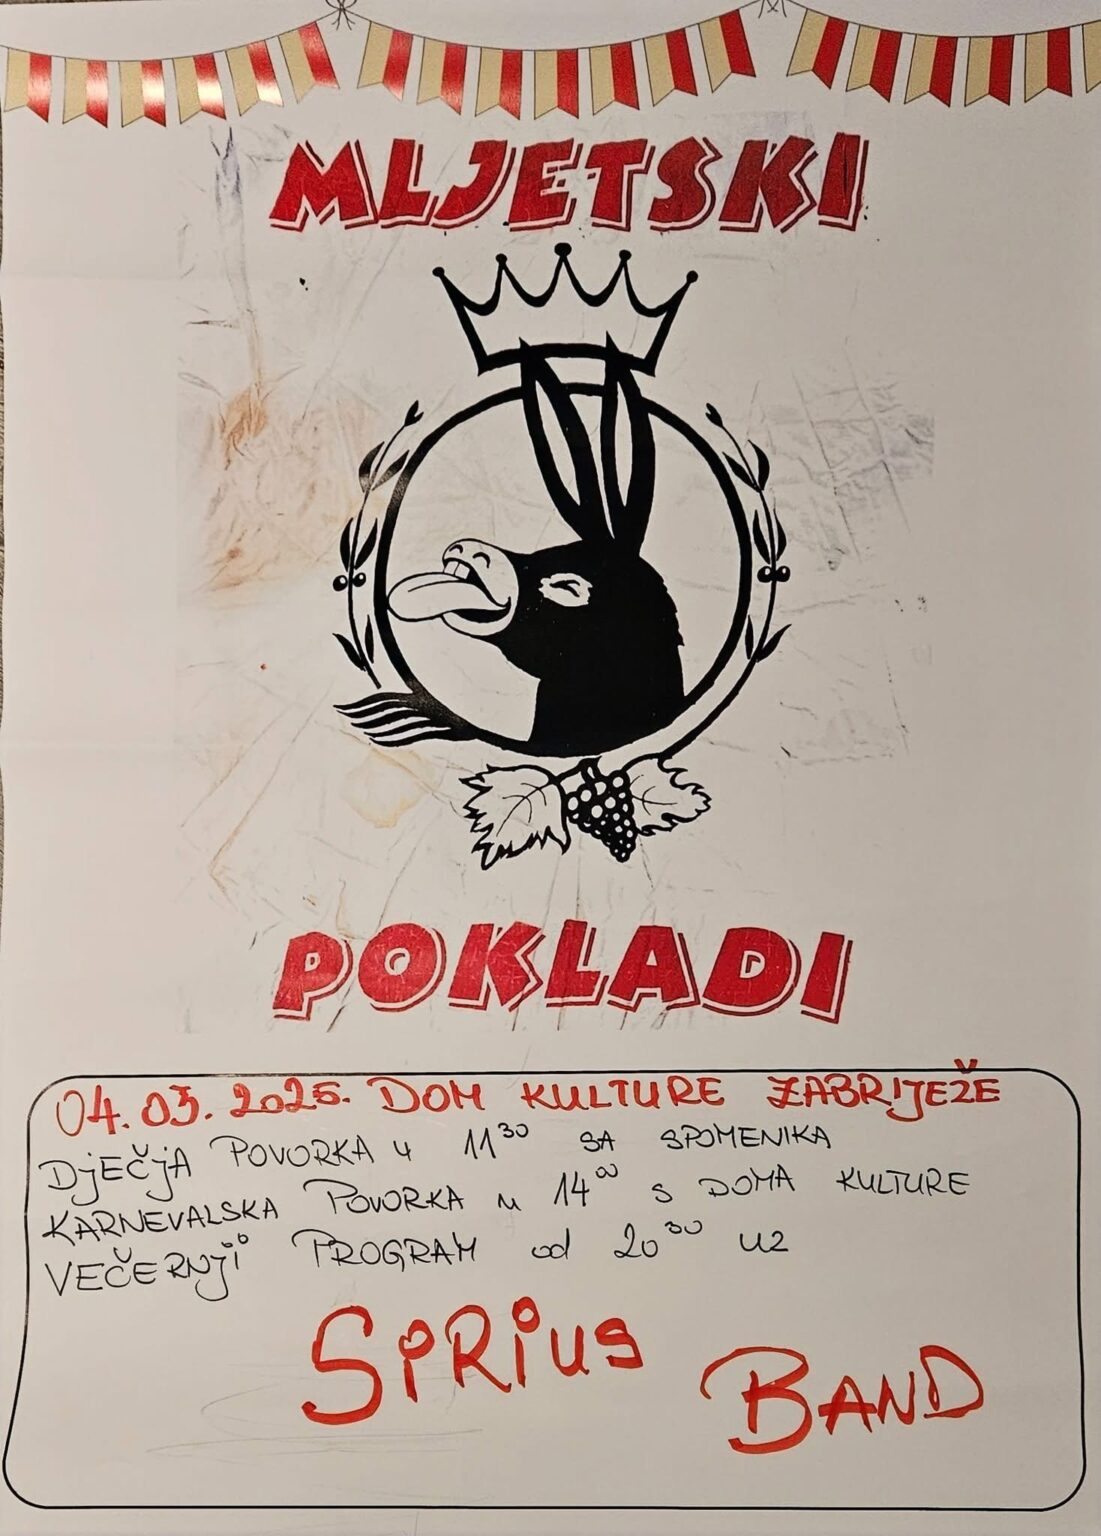 MLJETSKI
POKLADI
04.03.2025. DOM KULTURE ZABRIJEŽE
DJEČJA POVORKA u 11³⁰ SA SPOMENIKA
KARNEVALSKA POVORKA u 14⁰⁰ s DOMA KULTURE
VEČERNJI PROGRAM od 20³⁰ uz
SIRIUS
BAND